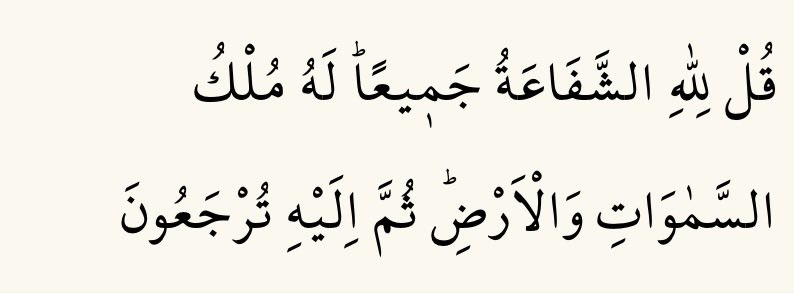 قُلْ لِلّٰهِ الشَّفَاعَةُ جَم۪يعًاۜ لَهُ مُلْكُ
السَّمٰوَاتِ وَالْاَرْضِۜ ثُمَّ اِلَيْهِ تُرْجَعُونَ